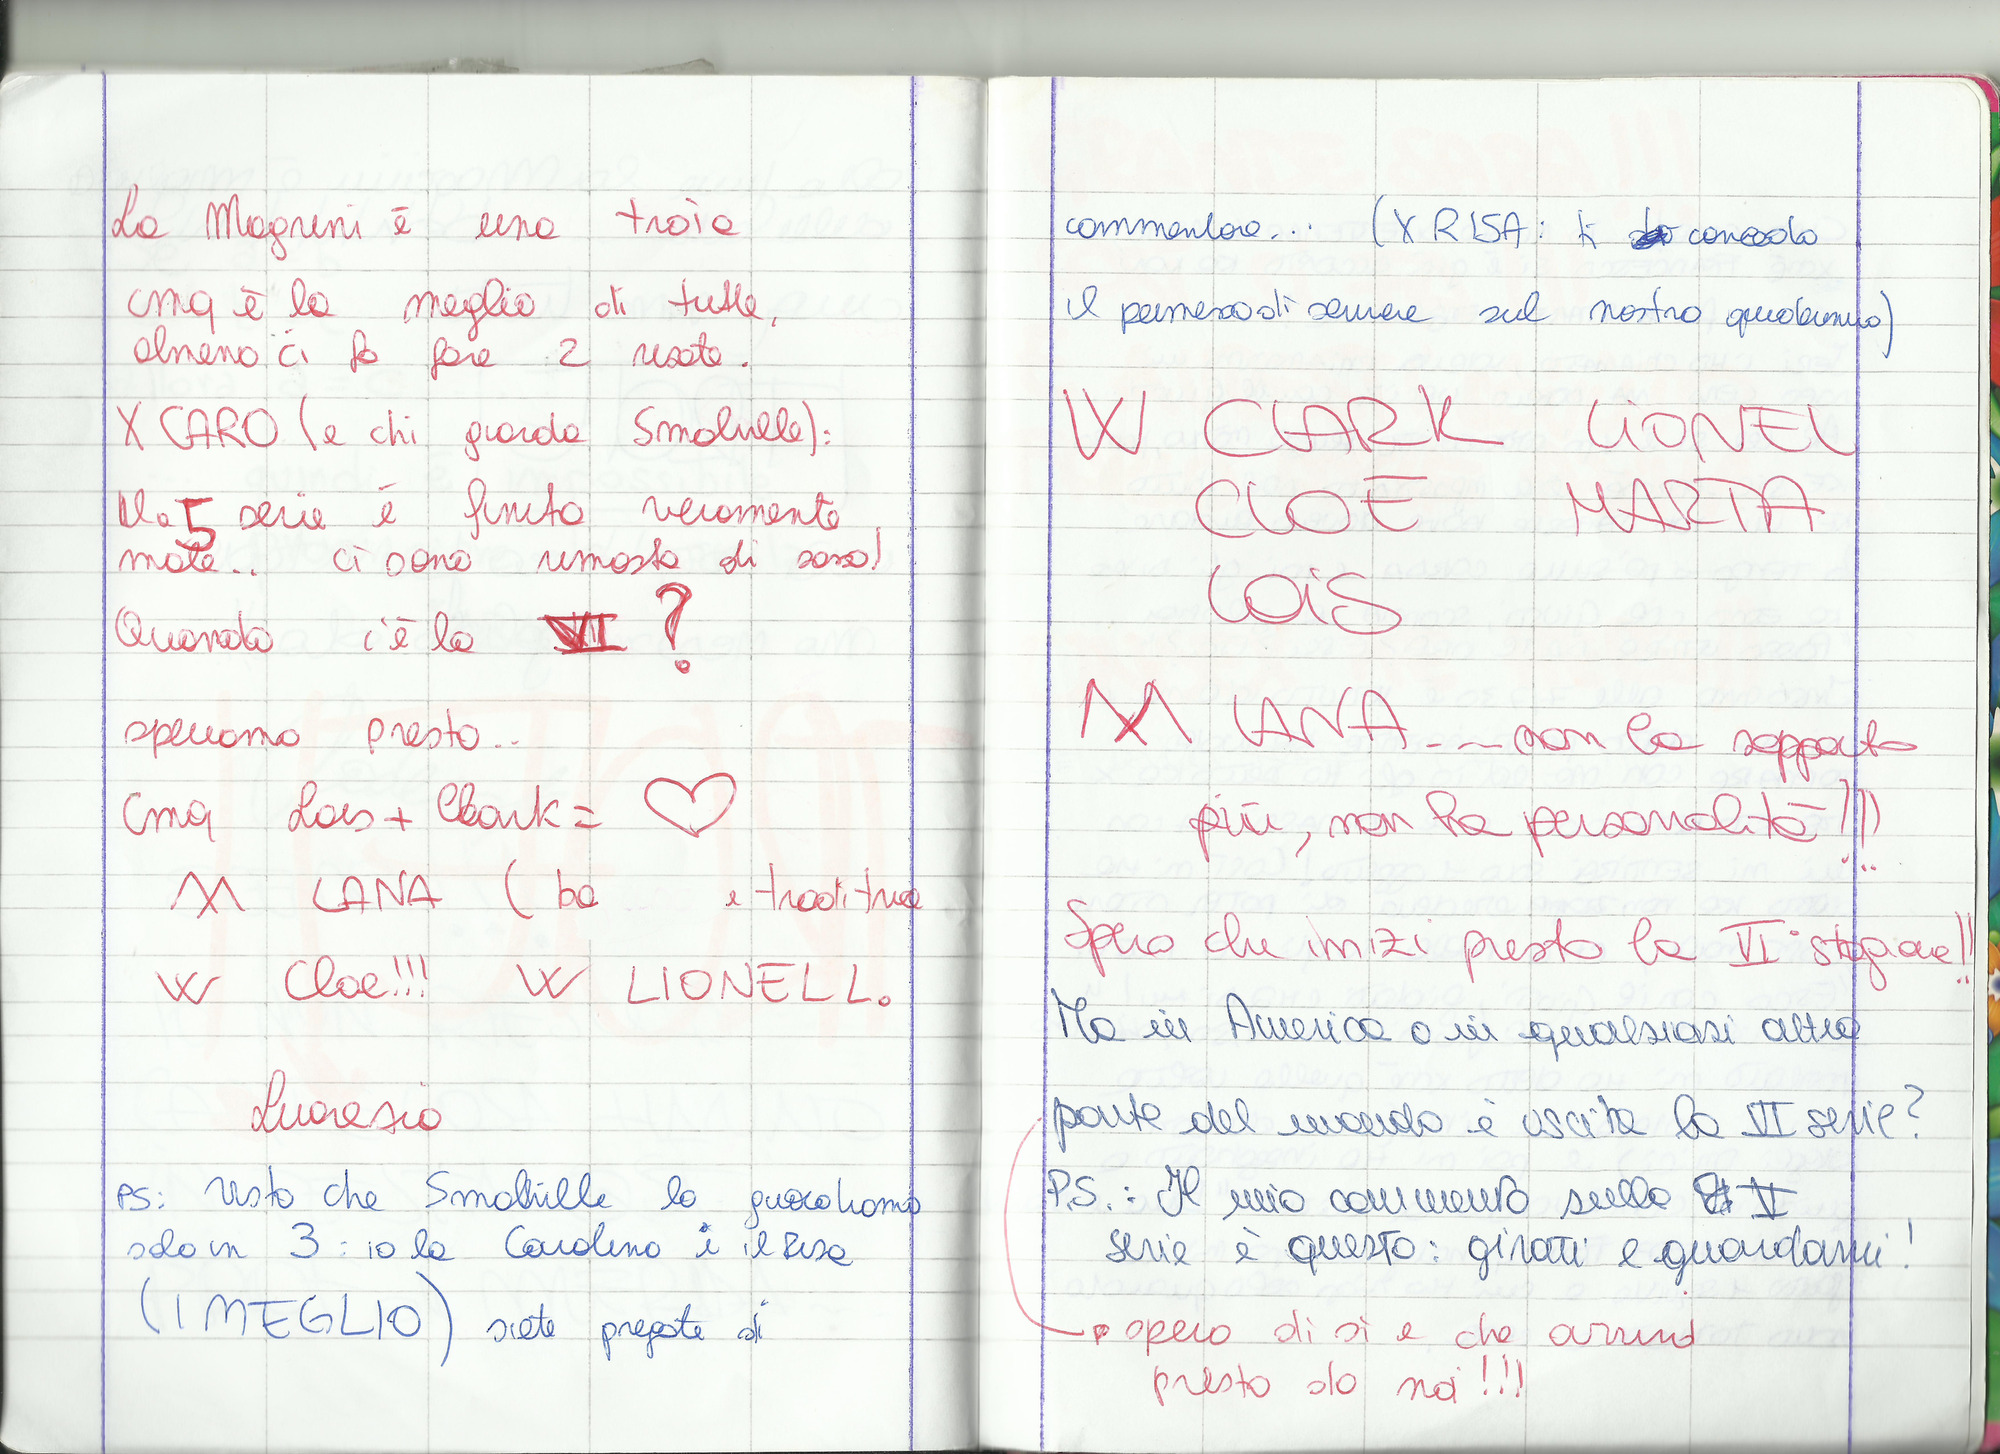 La Magrini è una troia
cmq è la meglio di tutte,
almeno ci fa fare 2 risate.
X CARO (e chi guarda Smalville):
La 5 serie è finita veramente
male.. ci sono rimasta di sasso!
Quando c'è la VI ?
speriamo presto...
Cmq Lois + Clark =
M LANA ( ba e traditrice
W Cloe!!! W LIONELL.
Lucrezia
PS: visto che Smallville lo guardiamo
solo in 3 : io la Carolina e il Risa
(I MEGLIO) siete pregate di
commentare... (X RISA: ti concedo
il permesso di scrivere sul nostro quadernino)
W CLARK LIONEL
CLOE MARTA
LOIS
M LANA... non la sopporto
più, non ha personalità!!!
Spero che inizi presto la VI° stagione!!
Ma in America o in qualsiasi altra
parte del mondo è uscita la VI serie?
P.S.: Il mio commento sulla V
serie è questo: girati e guardami!
spero di si e che arrivi
presto da noi!!!